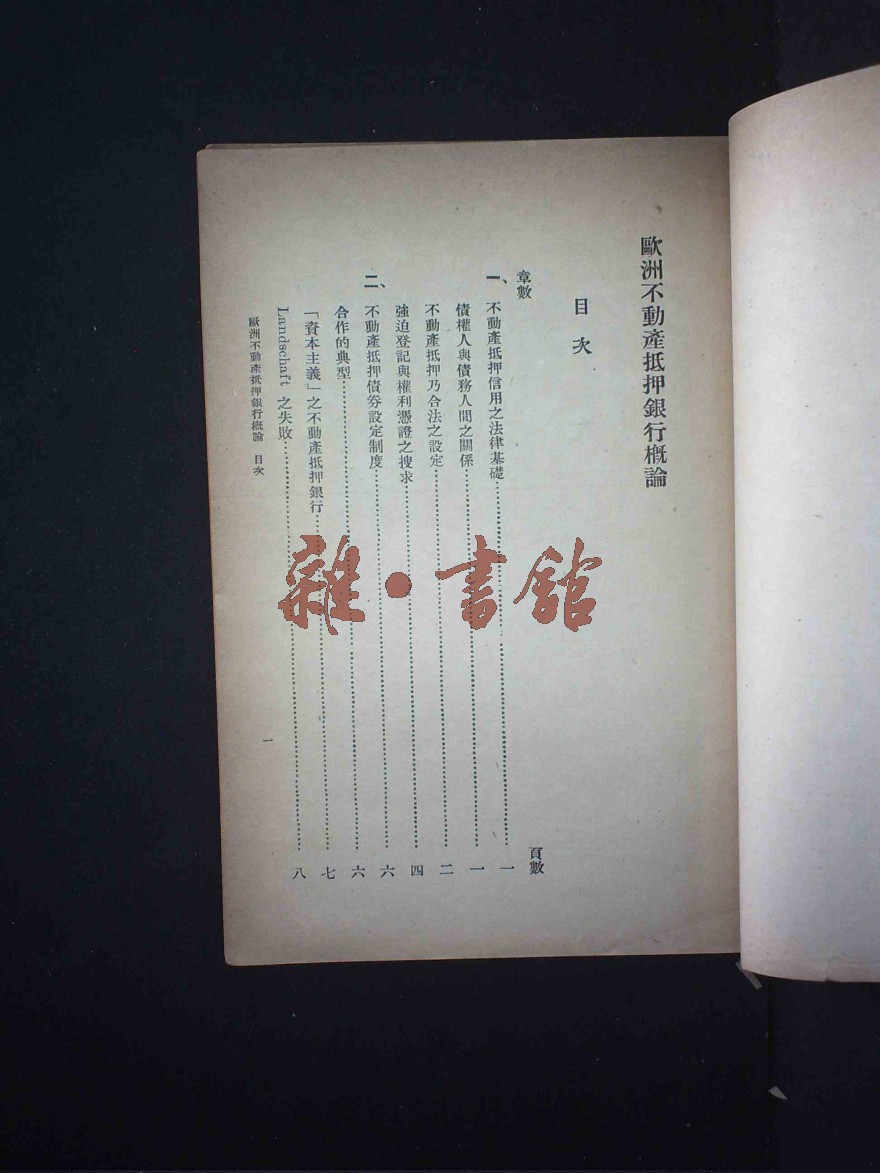 歐洲不動產抵押銀行槪論
目次
章數
頁數
一、不動產抵押信用之法律基礎……一
債權人與債務人間之關係……一
不動產抵押乃合法之設定……二
強迫登記與權利憑證之搜求……四
二、不動產抵押債券設定制度……六
合作的典型……六
「資本主義」之不動產抵押銀行……七
Landschaft 之失敗……八
歐洲不動產抵押銀行槪論 目次
一
雜·書館